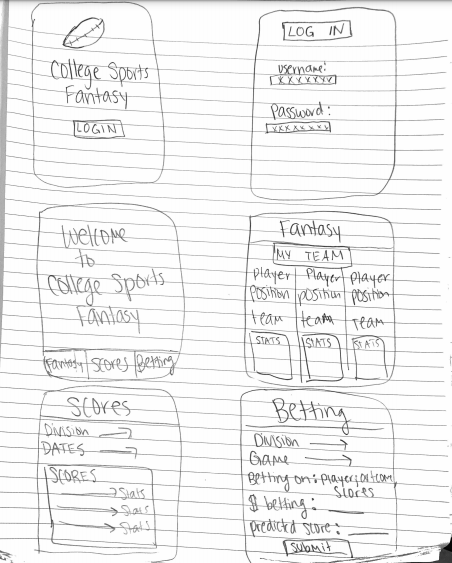 College Sports
Fantasy
LOGIN
LOG IN
username:
xxxxxxx
Password:
xxxxxxx
Welcome
to
College Sports
Fantasy
Fantasy Scores Betting
Fantasy
MY TEAM
player Player player
position position position
team team team
STATS STATS STATS
Scores
Division
DATES
SCORES
Stats
Stats
Stats
Betting
Division
Game
Betting on: player, outcome,
Scores
$ betting:
predictd score:
submit